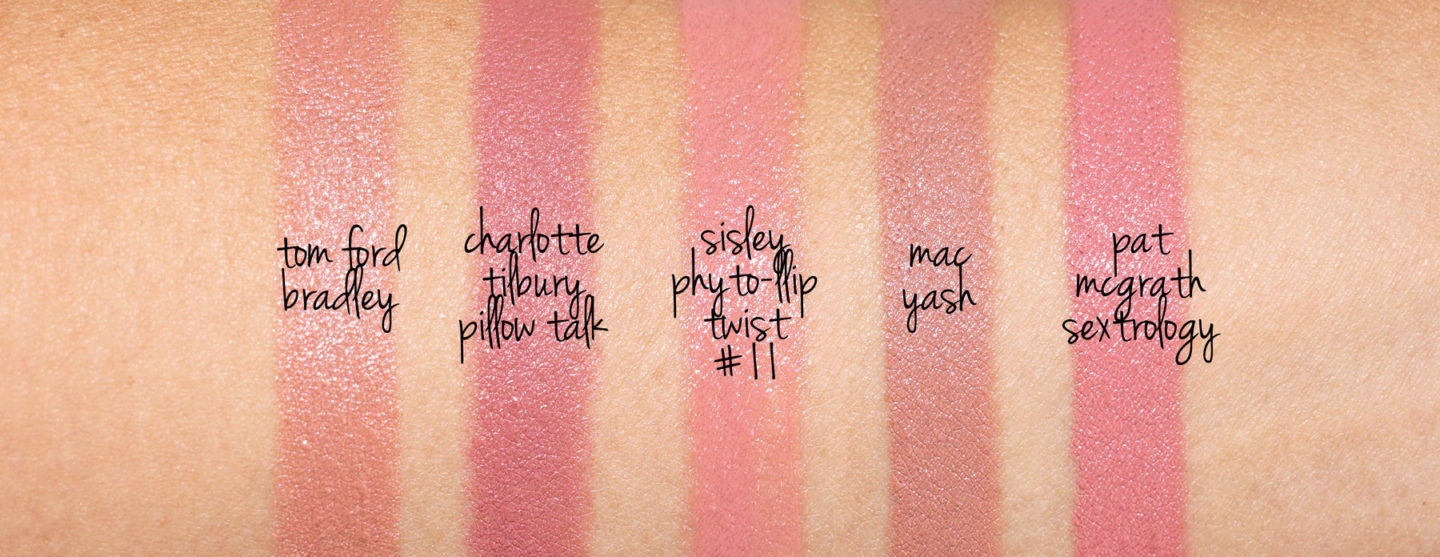 tom ford
bradley
charlotte
tilbury
pillow talk
sisley
phyto-llip
twist
#11
mac
yash
pat
mcgrath
sextrology